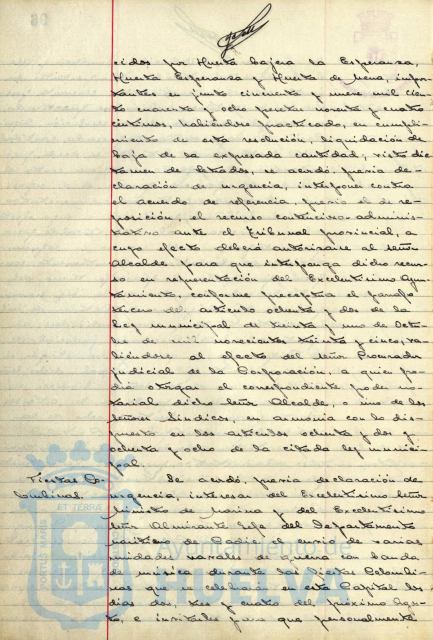 cidos por Huerta bajera la Esperanza,
Huerta Esperanza y Huerta de Mena, impor-
tantes en junto cincuenta y nueve mil cien-
to cuarenta y ocho pesetas noventa y cuatro
céntimos, habiéndose practicado, en cumpli-
miento de esta resolución, liquidación de
baja de la expresada cantidad, visto dic-
tamen de letrados, se acordó, previa de-
claración de urgencia, interponer contra
el acuerdo de referencia, previo el de re-
posición, el recurso contencioso-adminis-
trativo ante el Tribunal provincial, a
cuyo efecto deberá autorizarse al señor
Alcalde para que interponga dicho recur-
so en representación del Excelentísimo Ayun-
tamiento, conforme preceptúa el párrafo
tercero del artículo ochenta y dos de la
Ley municipal de treinta y uno de Octu-
bre de mil novecientos treinta y cinco, va-
liéndose al efecto del señor Procurador
judicial de la Corporación, a quien po-
drá otorgar el correspondiente poder no-
tarial dicho señor Alcalde, o uno de los
señores Síndicos, en armonía con lo dis-
puesto en los artículos ochenta y dos y
ochenta y ocho de la citada ley munici-
pal.
Fiestas Co-
lombinas.
Se acordó, previa declaración de
urgencia, interesar del Excelentísimo señor
Ministro de Marina y del Excelentísimo
señor Almirante Jefe del Departamento
marítimo de Cadiz el envío de varias
unidades navales de guerra con banda
de música durante las Fiestas Colombi-
nas que se celebrarán en esta Capital los
días dos, tres y cuatro del próximo Agos-
to, e invitarles para que personalmente
PORTUS MARIS ET TERRAE
Ayuntamiento de
HUELVA